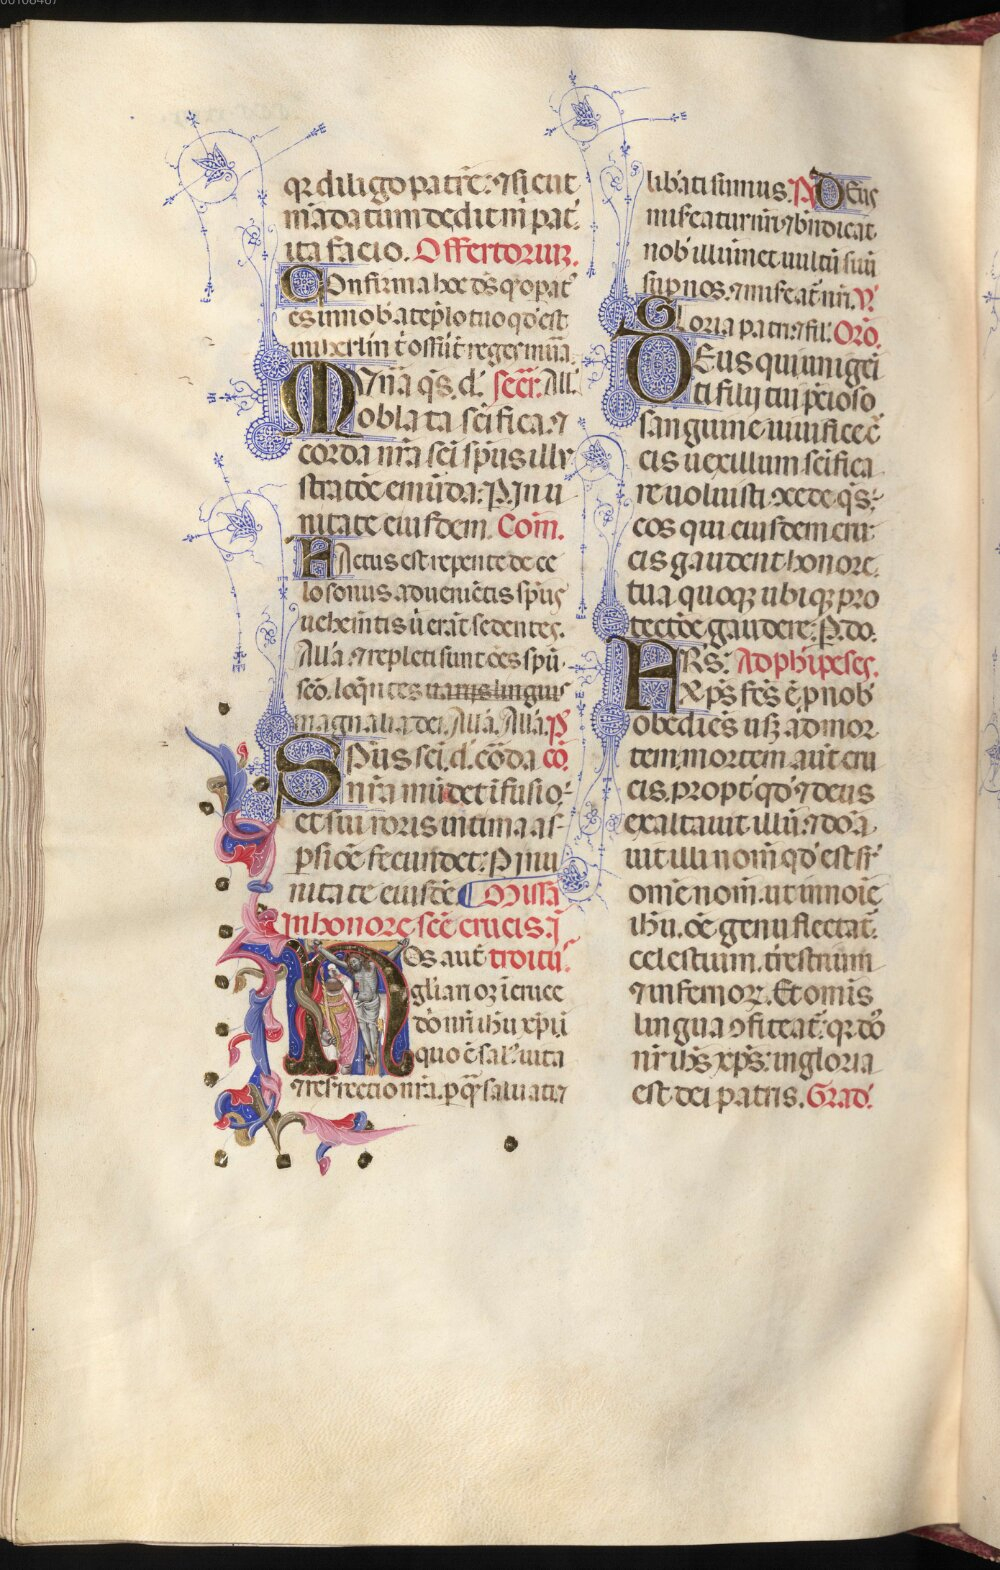 qr diligo patrē: ⁊ sicut
mādatum dedit m̄ pat̄.
ita facio. Offertoruꝫ.
Confirma hoc ds̄ qͦ opat̄
es ī nob̄ a tēplo tuo qͦ d̄ est
in ihrlm̄ t̄ offūt reges mūa.
Mun̄a qs̄. d. secr̄. All̄.
oblata sc̄ifica ⁊
corda nr̄a sc̄i sp̄us illu
stratōe emūda: P. In u
nitate eiusdem. Com̄.
Factus est repente de ce
lo sonus aduenīetis sp̄us
uehem̄tis ū erāt sedentes.
Alla. ⁊ repleti sunt oēs sp̄u
sc̄o. loqn̄tes uariis linguis
magnalia dei. Alla. Alla. P̄
Sp̄us sc̄i. d. corda cō.
nr̄a mūdet īfusio:
et sui roris intima as
psiōe fecundet: P. In u
nitate eiusdē Missa
In honore sc̄e crucis. I
Nos aut̄ troitū.
gl̄iari oꝫ ī cruce
dō nr̄i ih̄u xp̄i ī
quo ē sal' uita
⁊ resrectio nr̄a. p qͦ saluati ⁊
libati sumus. P̄. Deus
miseatur nr̄i ⁊ bn̄dicat
nob̄ illuminet uultū suū
sup nos. ⁊ miseat̄ nr̄i. V̄.
Gloria patri ⁊ fil̄. Orō.
Deus qui unigēi
ti filij tui p̄cioso
sanguine uiuifice c̄
cis uexillum sc̄ifica
re uoluisti. ꝯcede qs̄:
eos qui eiusdem cru
cis gaudent honore.
tua quoqꝫ ubiqꝫ pro
tectōe gaudere: P. do.
FRS: Ad phipeses.
Xp̄s fc̄s ē p nob̄
obediēs usqꝫ ad mor
tem. mortem aut̄ cru
cis. propt̄ qd̄ ⁊ deus
exaltauit illū: ⁊ dōa
uit illi nom̄ qd̄ est sr̄
om̄e nom̄. ut in noīe
ih̄u. oē genu flectat̄.
celestium. t̄restriūm
⁊ infernoꝝ. Et om̄is
lingua ꝯfiteat̄: qr dō
nr̄ ih̄s xp̄s: in gloria
est dei patris. Grad̄.